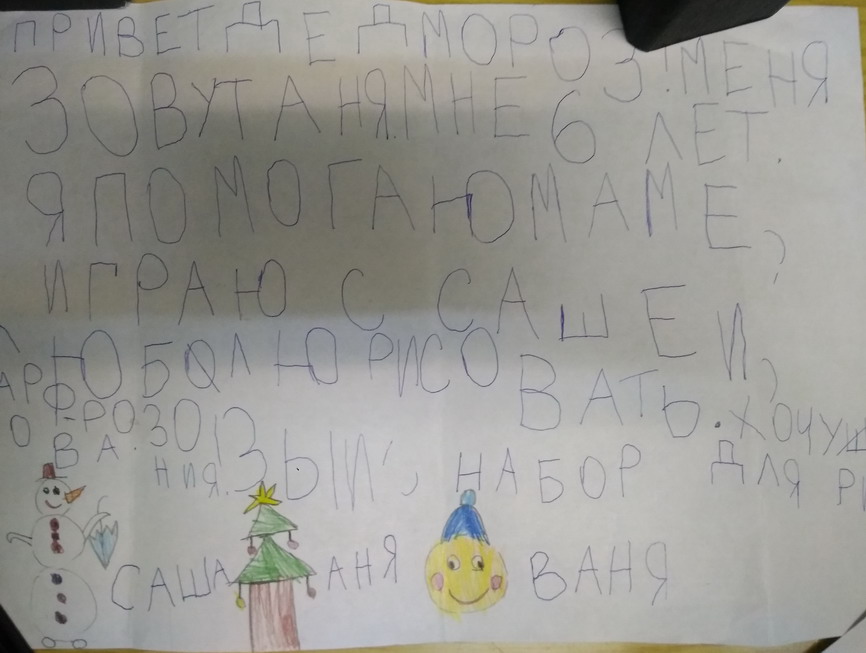 ПРИВЕТ ДЕД МОРОЗ! МЕНЯ
ЗОВУТ АНЯ. МНЕ 6 ЛЕТ.
Я ПОМОГАЮ МАМЕ,
ИГРАЮ С САШЕЙ,
ЛЮБЛЮ РИСО
ВАТЬ. ХОЧУ
РОЗО
ВЫЙ, НАБОР ДЛЯ РИ
ВА
НИЯ.
САША АНЯ ВАНЯ